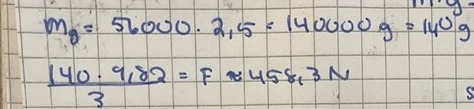 m_g = 56000 · 2,5 = 140000 g = 140 g
140 · 9,82 / 3 = F ≈ 458,3 N